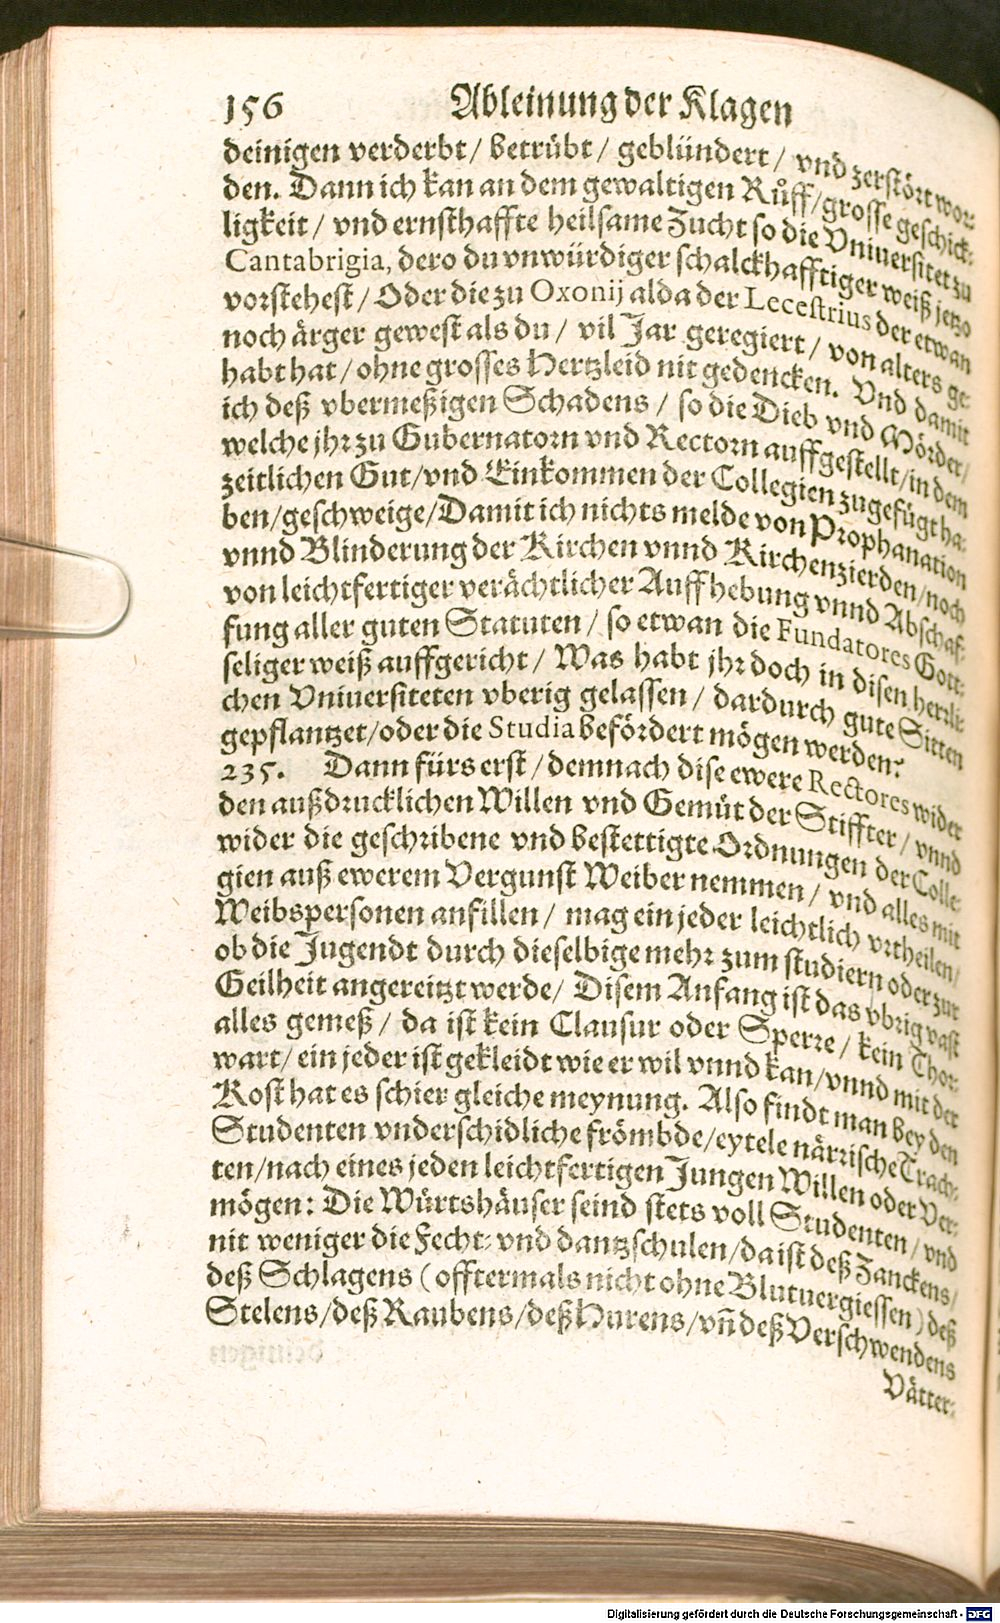 156 Ableinung der Klagen
deinigen verderbt / betrübt / geblündert / vnd zerstört wor-
den. Dann ich kan an dem gewaltigen Růff / grosse geschick-
ligkeit / vnd ernsthaffte heilsame Zucht so die Vniuersitet zu
Cantabrigia, dero du vnwürdiger schalckhafftiger weiß jetzo
vorstehest / Oder die zu Oxonij alda der Lecestrius der etwan
noch ärger gewest als du / vil Jar geregiert / von alters ge-
habt hat / ohne grosses Hertzleid nit gedencken. Vnd damit
ich deß vbermeßigen Schadens / so die Dieb vnd Mörder /
welche jhr zu Gubernatorn vnd Rectorn auffgestellt / in dem
zeitlichen Gut / vnd Einkommen der Collegien zugefügt ha-
ben / geschweige / Damit ich nichts melde von Prophanation
vnnd Blinderung der Kirchen vnnd Kirchenzierden / noch
von leichtfertiger verächtlicher Auffhebung vnnd Abschaf-
fung aller guten Statuten / so etwan die Fundatores Gott-
seliger weiß auffgericht / Was habt jhr doch in disen herrli-
chen Vniuersiteten vberig gelassen / dardurch gute Sitten
gepflantzet / oder die Studia befördert mögen werden?
235. Dann fürs erst / demnach dise ewere Rectores wider
den außdrucklichen Willen vnd Gemüt der Stiffter / vnnd
wider die geschribene vnd bestettigte Ordnungen der Colle-
gien auß ewerem Vergunst Weiber nemmen / vnd alles mit
Weibspersonen anfillen / mag ein jeder leichtlich vrtheilen /
ob die Jugendt durch dieselbige mehr zum studiern oder zur
Geilheit angereitzt werde / Disem Anfang ist das vbrig vast
alles gemeß / da ist kein Clausur oder Sperre / kein Thor-
wart / ein jeder ist gekleidt wie er wil vnnd kan / vnnd mit der
Kost hat es schier gleiche meynung. Also findt man bey den
Studenten vnderschidliche frömbde / eytele närrische Trach-
ten / nach eines jeden leichtfertigen Jungen Willen oder Ver-
mögen: Die Würtshäuser seind stets voll Studenten / vnd
nit weniger die Fecht- vnd dantzschulen / da ist deß Zanckens /
deß Schlagens ( offtermals nicht ohne Blutuergiessen ) deß
Stelens / deß Raubens / deß Hurens / vñ deß Verschwendens
Vätter-
Digitalisierung gefördert durch die Deutsche Forschungsgemeinschaft - DFG